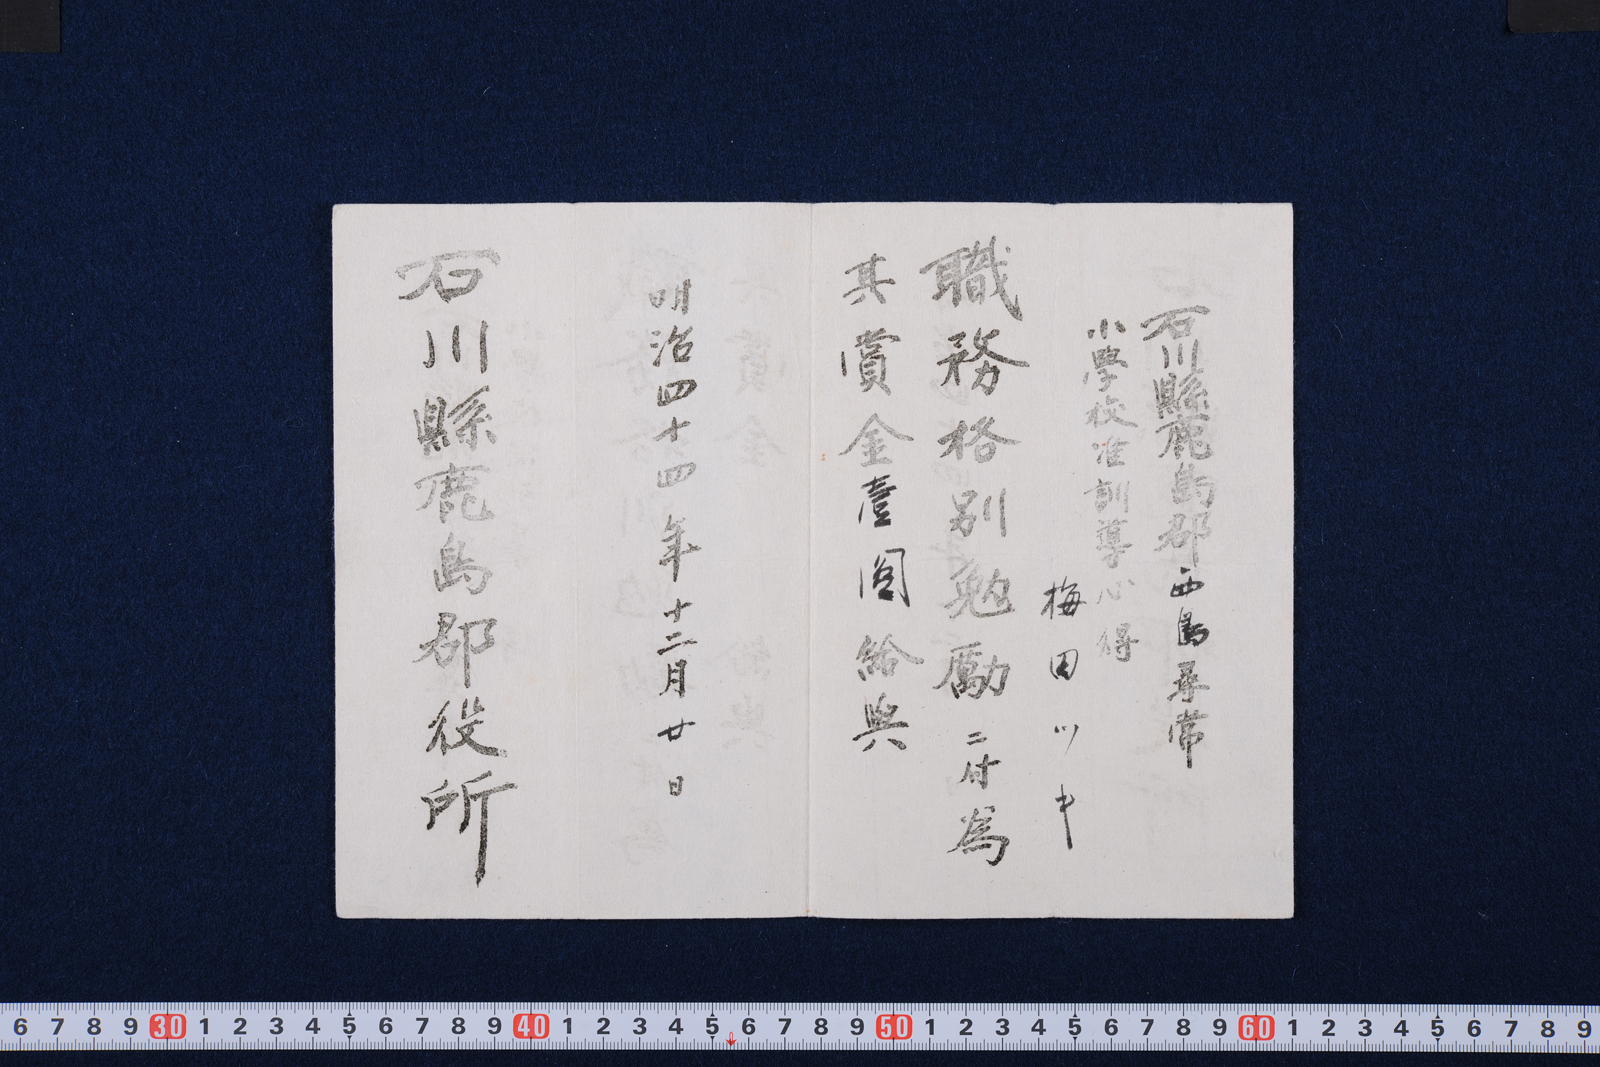 石川縣鹿島郡西島尋常
小學校准訓導心得
梅田ツキ
職務格別勉勵ニ付為
其賞金壹圓給與
明治四十四年十二月廿日
石川縣鹿島郡役所
6 7 8 9 30 1 2 3 4 5 6 7 8 9 40 1 2 3 4 5 6 7 8 9 50 1 2 3 4 5 6 7 8 9 60 1 2 3 4 5 6 7 8 9